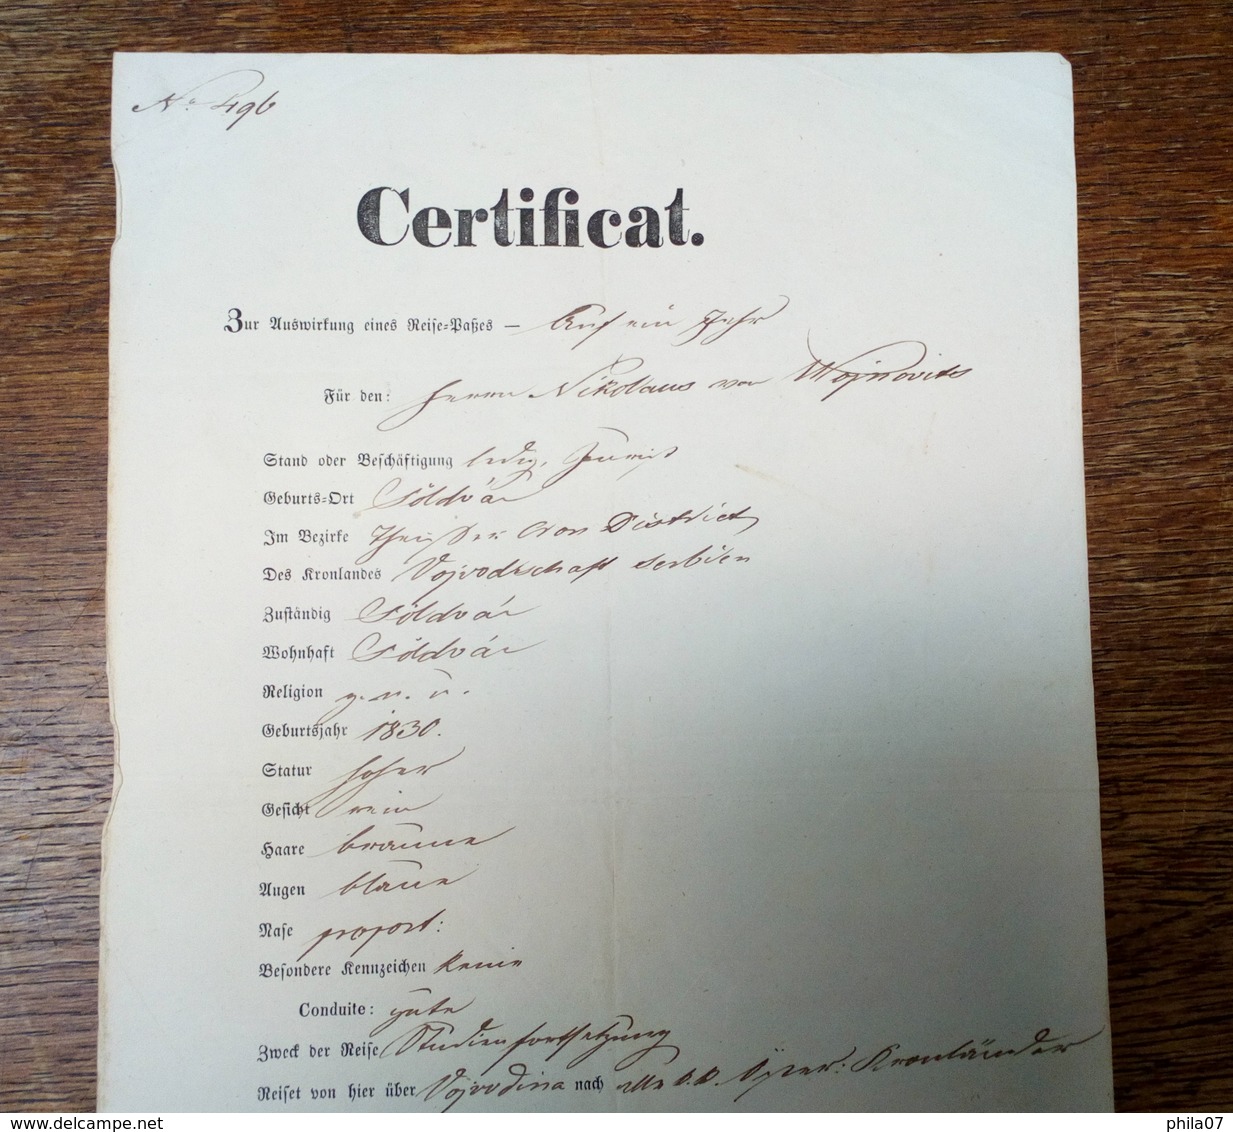 No 496
Certificat.
Zur Auswirkung eines Reise-Paßes — Auf ein Jahr
Für den: Herrn Nikolaus von Wojnovits
Stand oder Beschäftigung ledig, Jurist
Geburts-Ort Földvár
Im Bezirke Theißer Cron District
Des Kronlandes Vojvodschaft Serbien
Zuständig Földvár
Wohnhaft Földvár
Religion g. n. u.
Geburtsjahr 1830.
Statur hoher
Gesicht rein
Haare braune
Augen blaue
Nase proport:
Besondere Kennzeichen keine
Conduite: gute
Zweck der Reise Studienfortsetzung
Reiset von hier über Vojvodina nach alle k.k. Kronländer
phila07